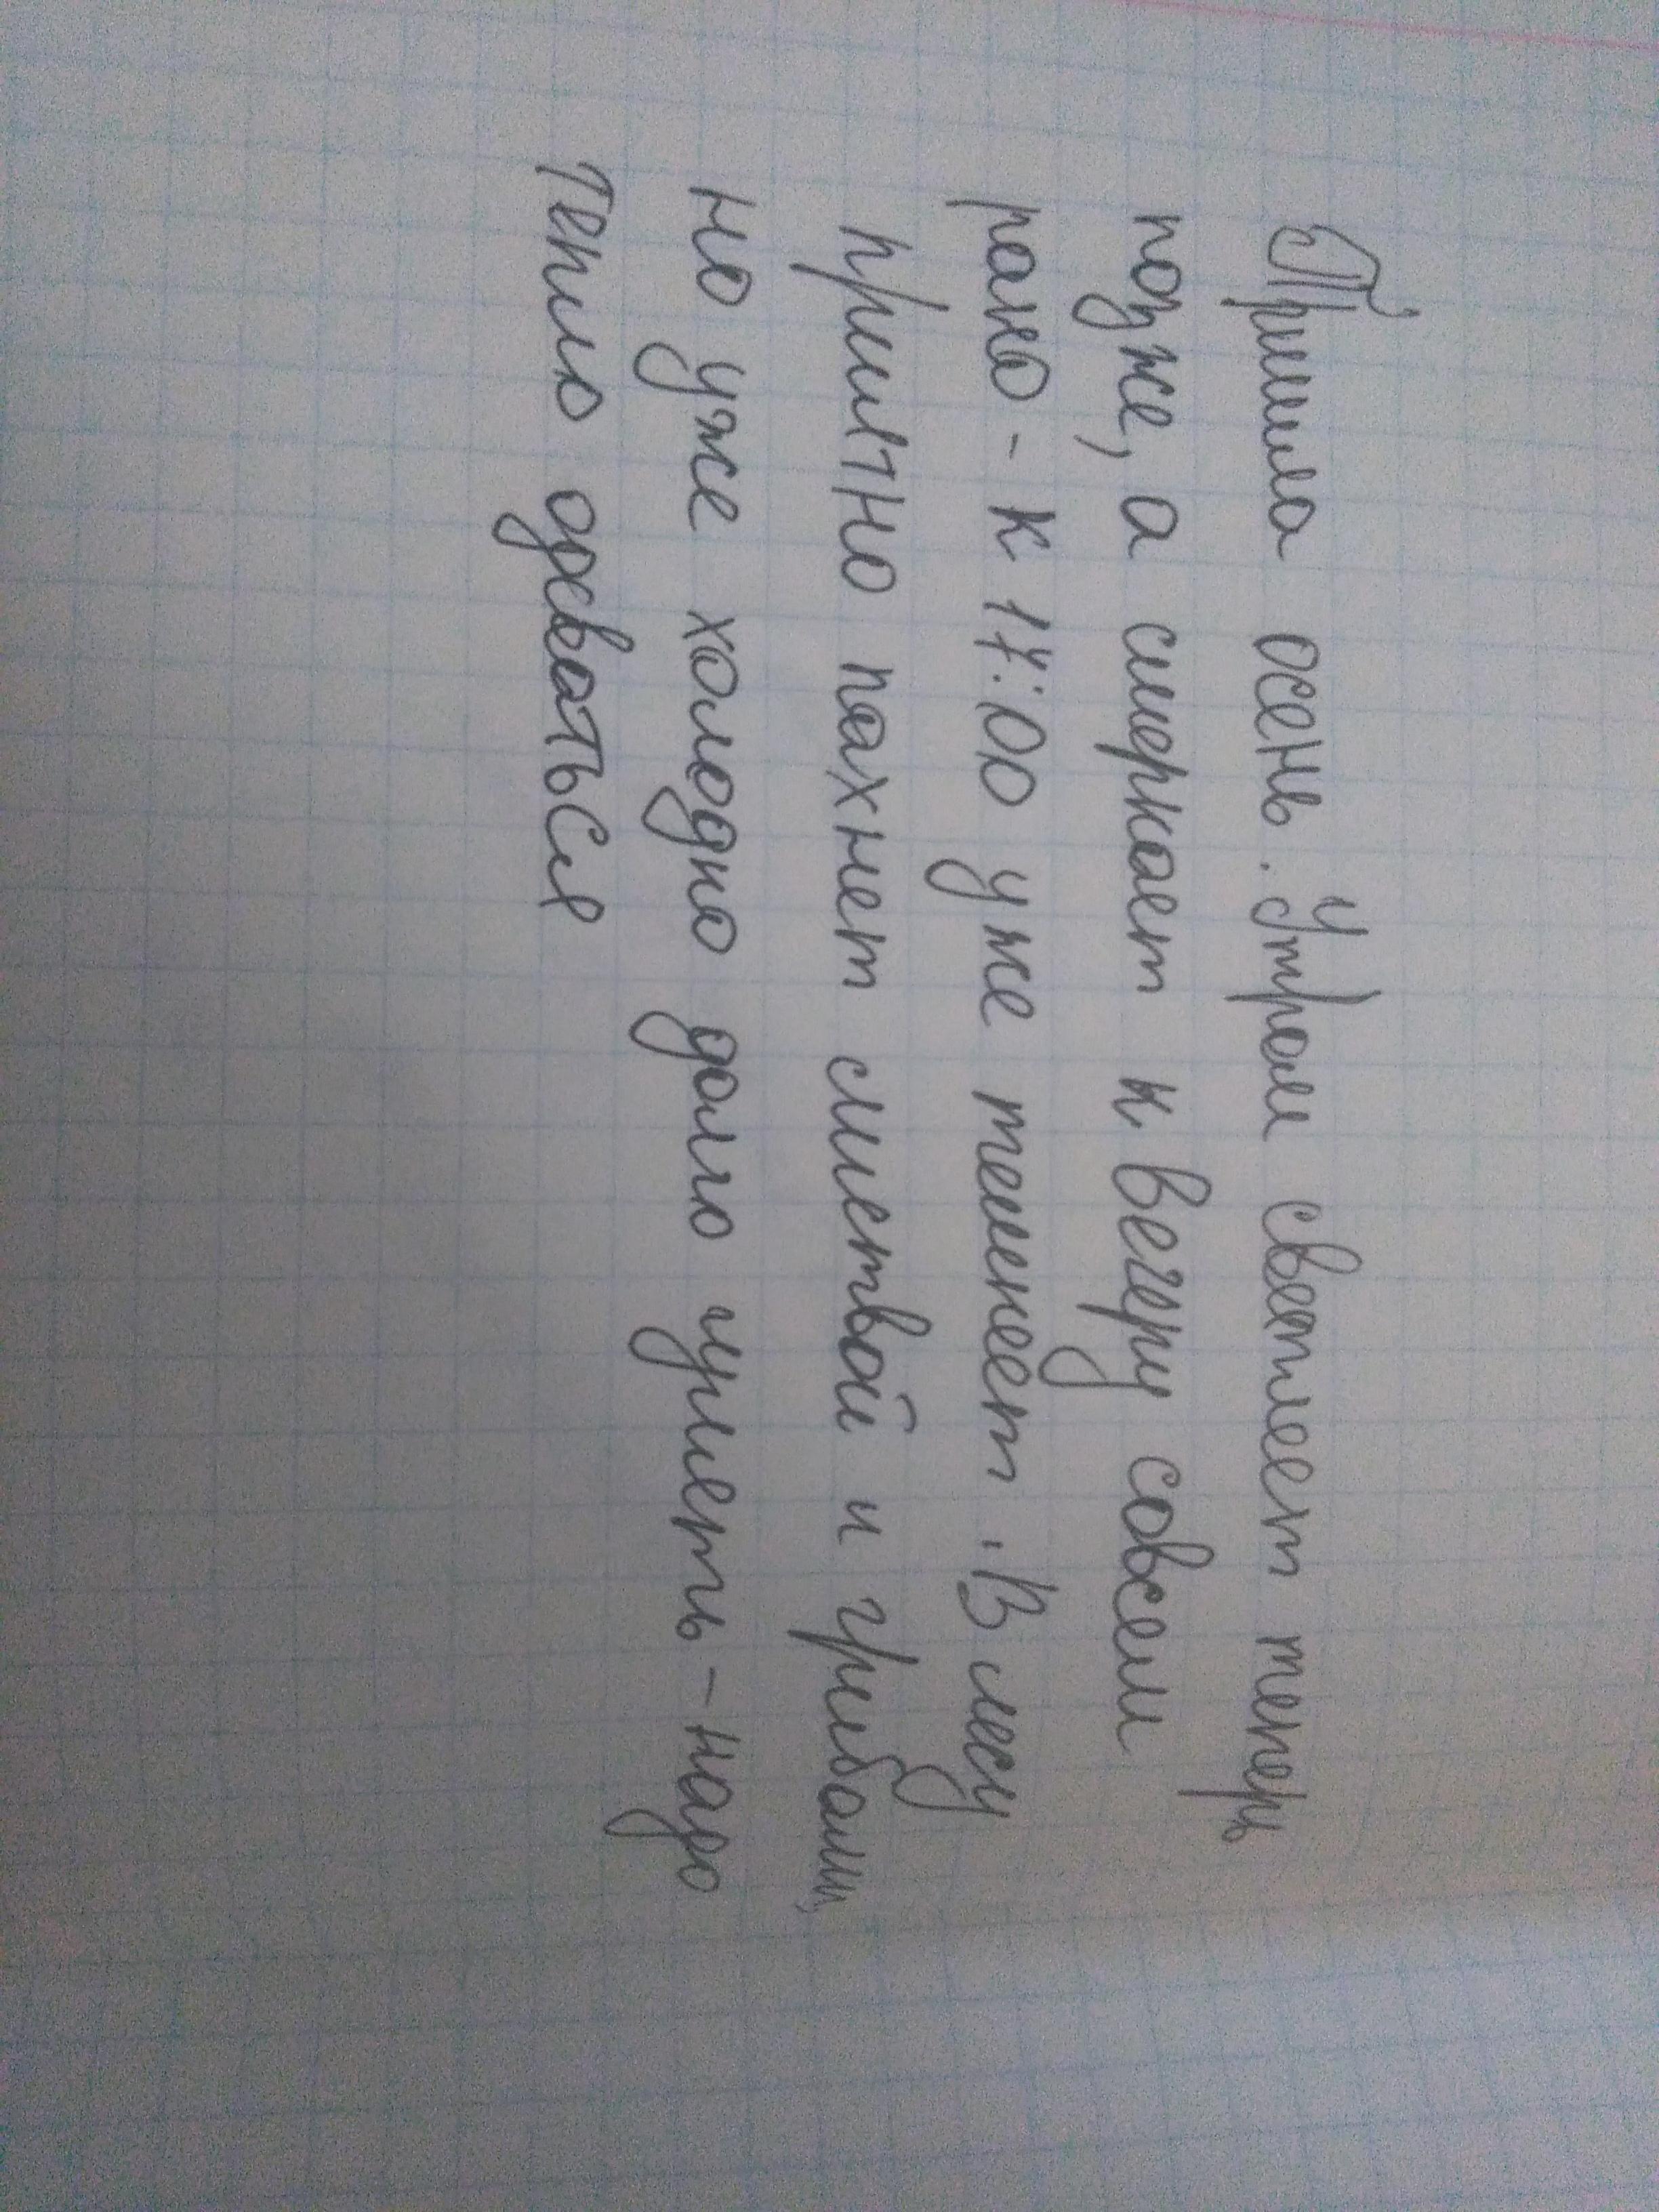 Пришла осень. Утром светлеет теперь
позже, а смеркает к вечеру совсем
рано - к 17:00 уже темнеет. В лесу
приятно пахнет листвой и грибами,
но уже холодно долго гулять - надо
тепло одеваться